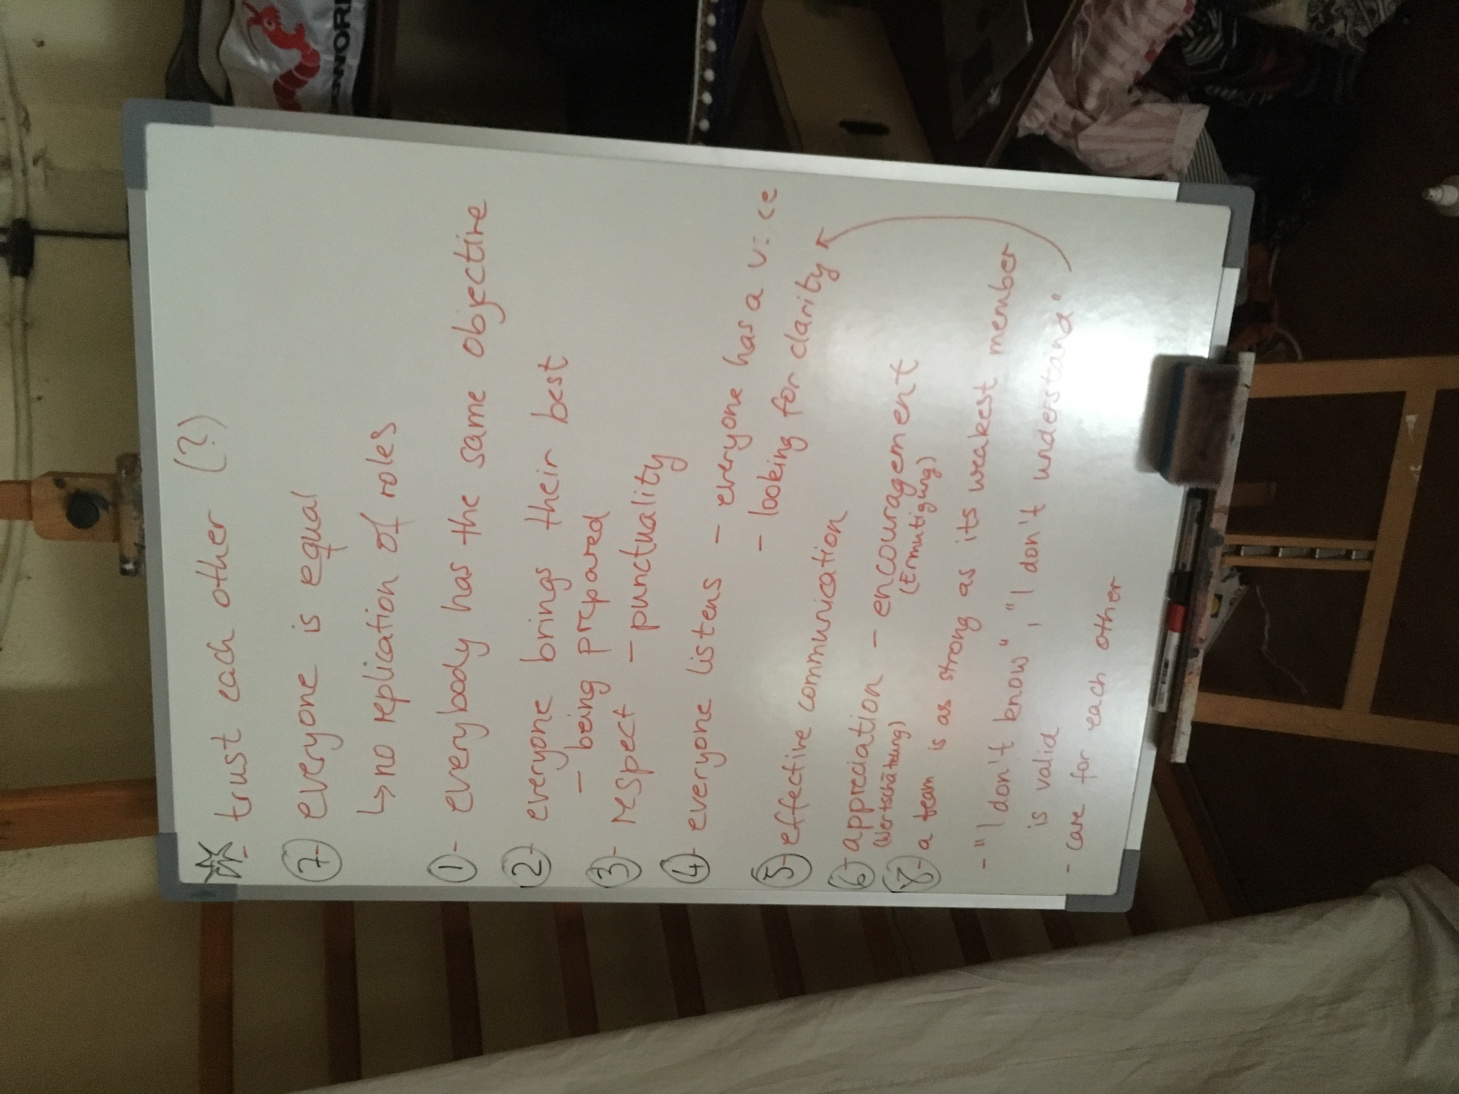 ☆- trust each other (?)
⑦- everyone is equal
↳ no replication of roles
①- everybody has the same objective
②- everyone brings their best
- being prepared
③- respect - punctuality
④- everyone listens - everyone has a voice
- looking for clarity
⑤- effective communication
⑥- appreciation - encouragement
(Wertschätzung) (Ermutigung)
⑧- a team is as strong as its weakest member
- "I don't know", "I don't understand"
is valid
- care for each other